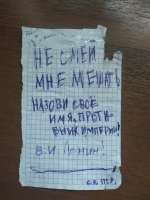 НЕ СМЕЙ
МНЕ МЕШАТЬ
НАЗОВИ СВОЁ
ИМЯ, ПРОТИ-
ВНИК ИМПЕРИИ!
В.И. Ленин!